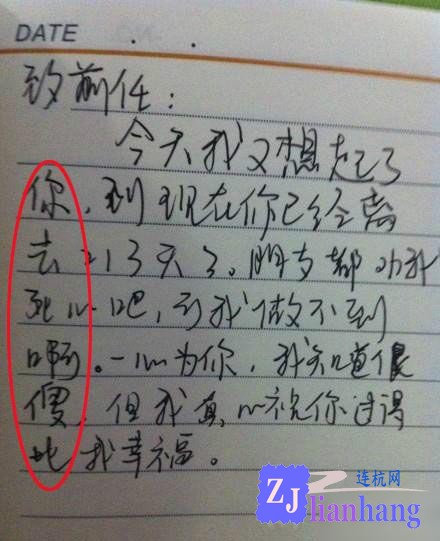 DATE . .
致前任：
今天我又想起了
你，到现在你已经离
去213天了。朋友都劝我
死心吧，可我做不到
啊。一心为你，我知道很
傻，但我真心祝你过得
比我幸福。
连杭网
ZJ lianhang